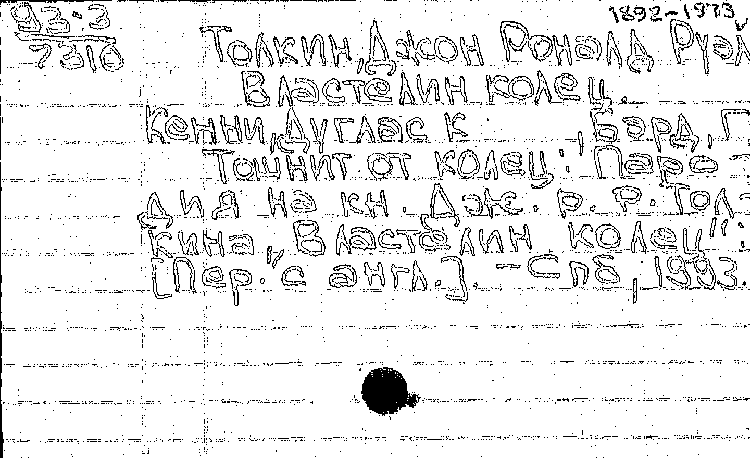 93-3
7310
1892-1973
Толкин, Джон Роналд Руэл
Властелин колец.
Кенни, Дуглас К., Бард, Г
Тошнит от колец: Паро-
дия на кн. Дж. Р. Р. Тол-
кина „Властелин колец“:
[Пер. с англ.]. - Спб, 1993.